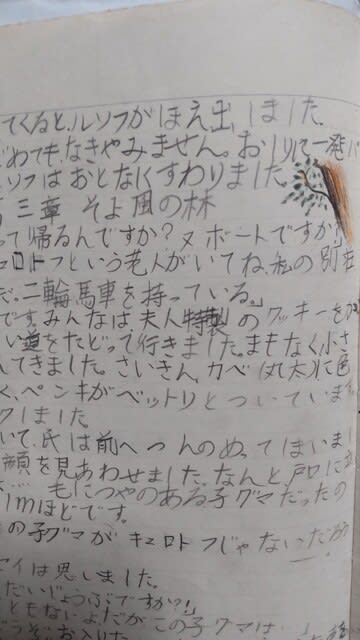 てくると、ルソフがほえ出しました。
じめても、なきやみません。おしりに一発バ
ソフはおとなしくすわりました。
三章 そよ風の林
って帰るんですか？ヌボートですか
ュロトフという老人がいてね、私の別荘
だ。二輪馬車を持っている。」
です。みんなは、夫人特製のクッキーを
い道をたどって行きました。まもなく、小さ
してきました。さいきん、カベ(丸太)に色
く、ペンキがベットリとついていま
クしました。
いて、氏は前へつんのめってしまいま
顔を見あわせました。なんと、戸口に
もにつやのある子グマだったの
1mほどです。
の子グマがキュロトフじゃないだか
セイは思いました。
だいじょうぶですか？」
ともなによだがこの子グマは
うぞお入り